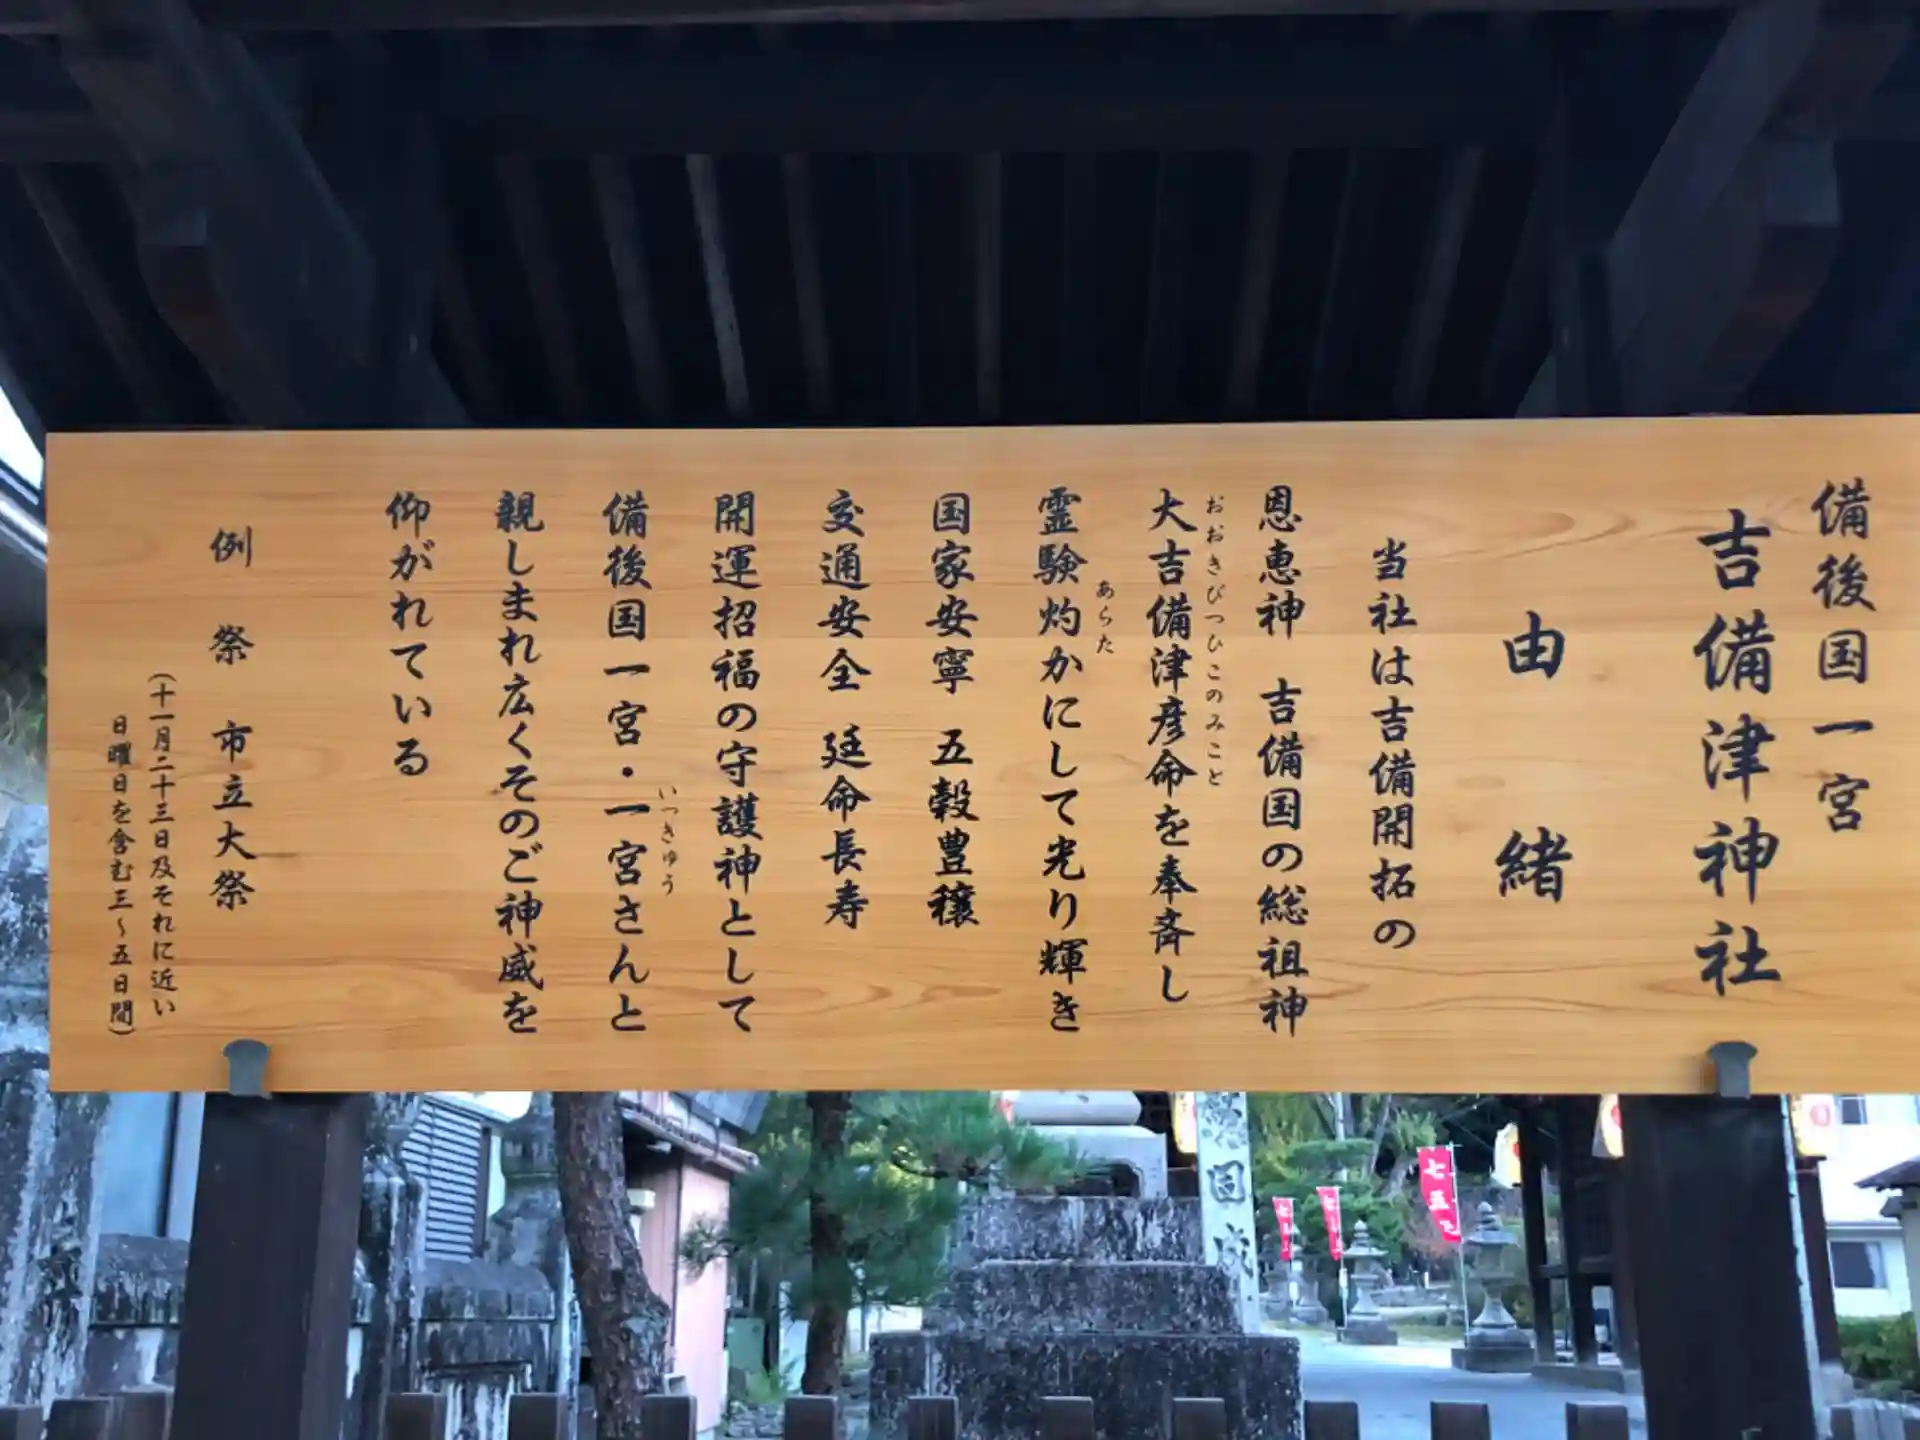 備後国一宮
吉備津神社
由緒
当社は吉備開拓の
恩恵神 吉備国の総祖神
おおきびつひこのみこと
大吉備津彦命を奉斎し
あらた
霊験灼かにして光り輝き
国家安寧 五穀豊穣
交通安全 廷命長寿
開運招福の守護神として
いっきゅう
備後国一宮・一宮さんと
親しまれ広くそのご神威を
仰がれている
例祭 市立大祭
(十一月二十三日及それに近い
日曜日を含む三~五日間)
七五